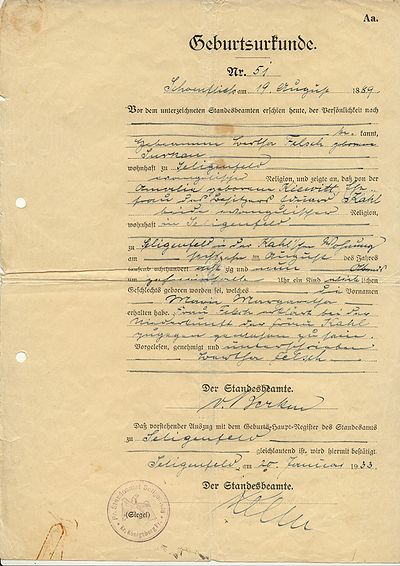 Aa.
Geburtsurkunde.
Nr. 51
am 19 August 1889
Vor dem unterzeichneten Standesbeamten erschien heute, der Persönlichkeit nach
kannt,
Hebeamme Bertha Felsch geborene
wohnhaft zu Seligenfeld
evangelischer Religion, und zeigte an, daß von der
Amalie geborenen Kiewitt, Ehe-
frau des Besitzers Eduard Kahl
beide evangelischer Religion,
wohnhaft in Seligenfeld
zu Seligenfeld in der Kahl'schen Wohnung
am August des Jahres
tausend achthundert acht zig und neun
um Uhr ein Kind weiblichen
Geschlechts geboren worden sei, welches Vornamen
Marie Margarethe
erhalten habe. Frau Felsch erklärt bei der
Niederkunft der Frau Kahl
zugegen gewesen zu sein.
Vorgelesen, genehmigt und unterschrieben
Bertha Felsch
Der Standesbeamte.
Daß vorstehender Auszug mit dem Geburts-Haupt-Register des Standesamts
zu Seligenfeld
gleichlautend ist, wird hiermit bestätigt.
Seligenfeld, am Januar 1933.
Der Standesbeamte.
(Siegel)